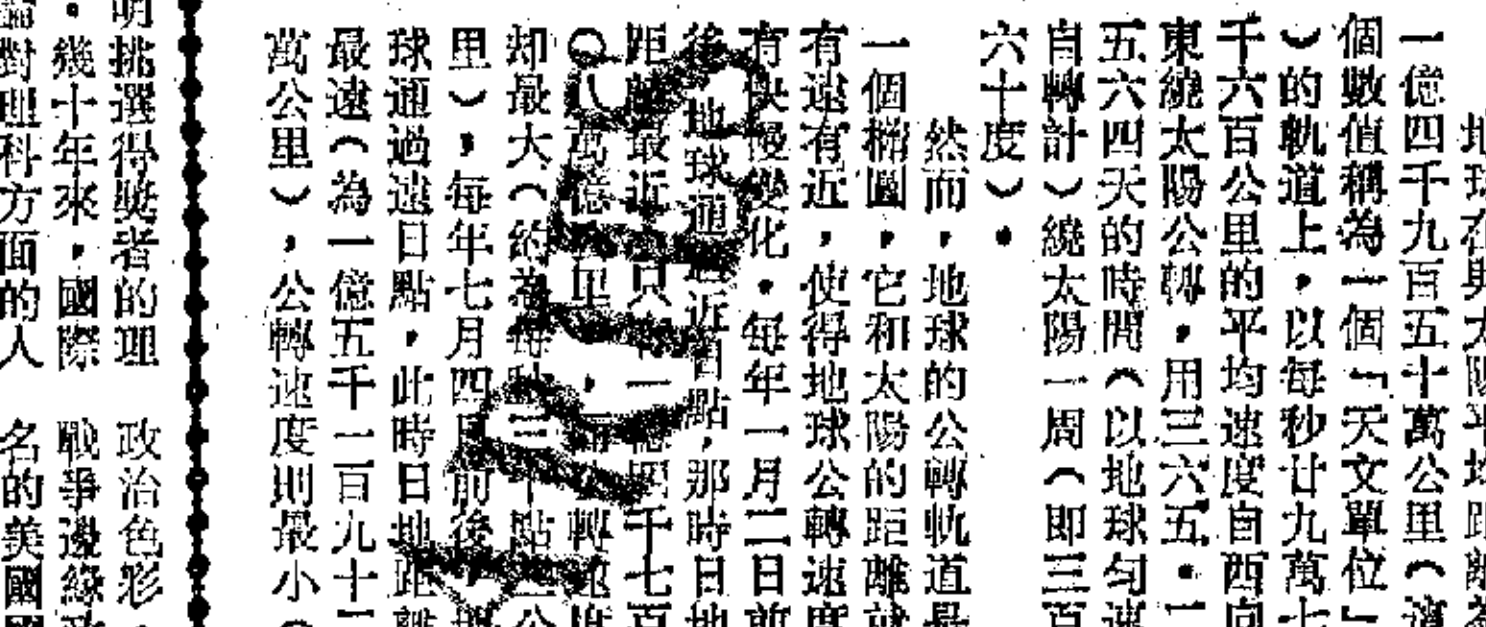 地球在與太陽平均距離為
一億四千九百五十萬公里（這
個數值稱為一個「天文單位」
）的軌道上，以每秒廿九萬七
千六百公里的平均速度自西向
東繞太陽公轉，用三六五·二
五六四天的時間（以地球勻速
自轉計）繞太陽一周（即三百
六十度）。
然而，地球的公轉軌道是
一個橢圓，它和太陽的距離就
有遠有近，使得地球公轉速度
有快慢變化。每年一月二日前
後地球通過近日點，那時日地
距離最近只有一億四千七百
萬公里，轉速度
却最大（約為每秒三十點公
里），每年七月四日前後
球通過遠日點，此時日地距離
最遠（為一億五千一百九十二
萬公里），公轉速度則最小（
明挑選得獎者的理 政治色彩，
。幾十年來，國際 戰爭邊緣政
對理科方面的人 名的美國國